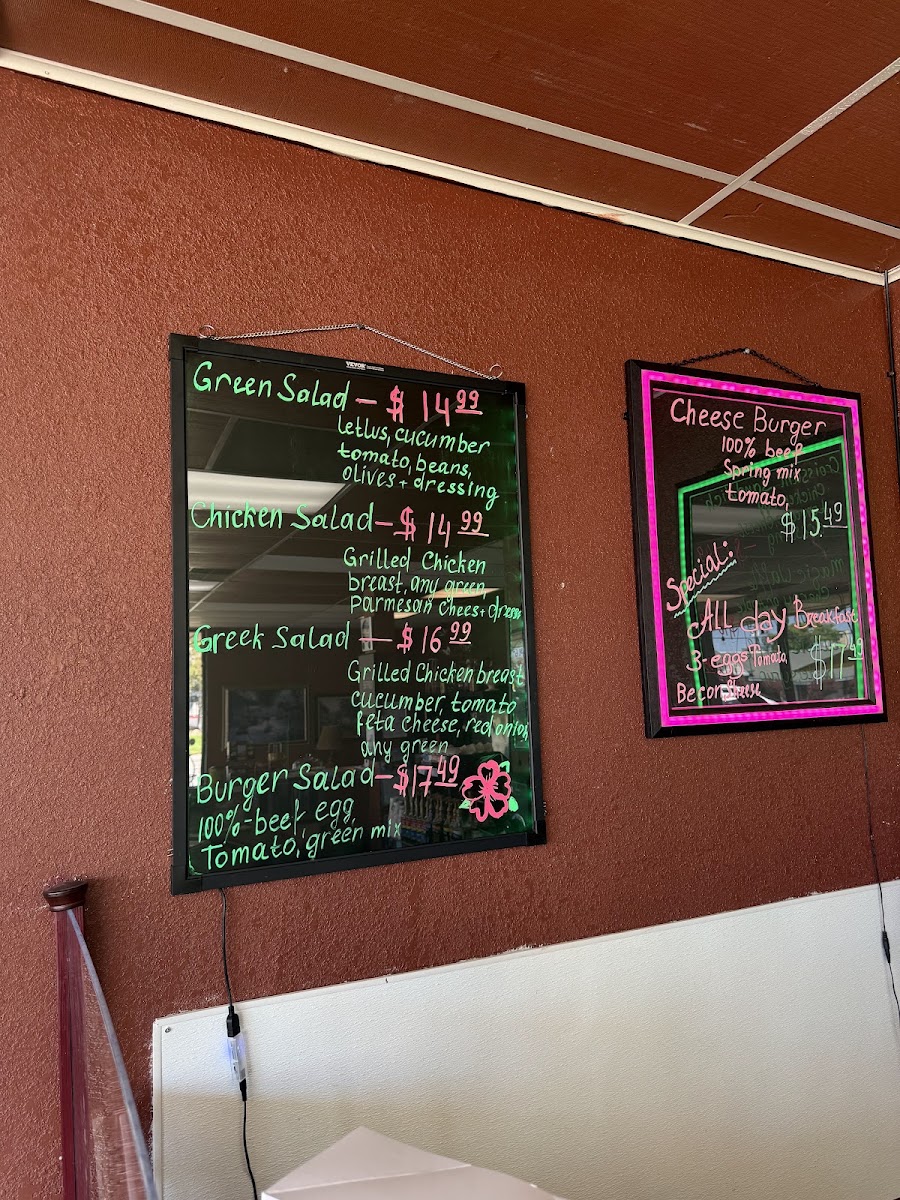 VEVOR
Green Salad — $ 14.99
letlus, cucumber
tomato, beans,
olives + dressing
Chicken Salad — $ 14.99
Grilled Chicken
breast, any green,
parmesan chees + dress
Greek Salad — $ 16.99
Grilled Chicken breast
cucumber, tomato
feta cheese, red onion,
any green
Burger Salad — $17.49
100%-beef, egg,
Tomato, green mix
Cheese Burger
100% beef
Spring mix
tomato,
$15.49
Special:
All day Breakfast
3-eggs Tomato,
$17.49
Becon, Cheese